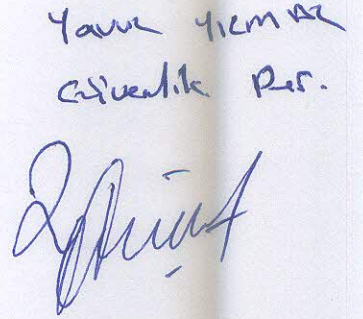 Yavuz YILMAZ
Güvenlik Per.